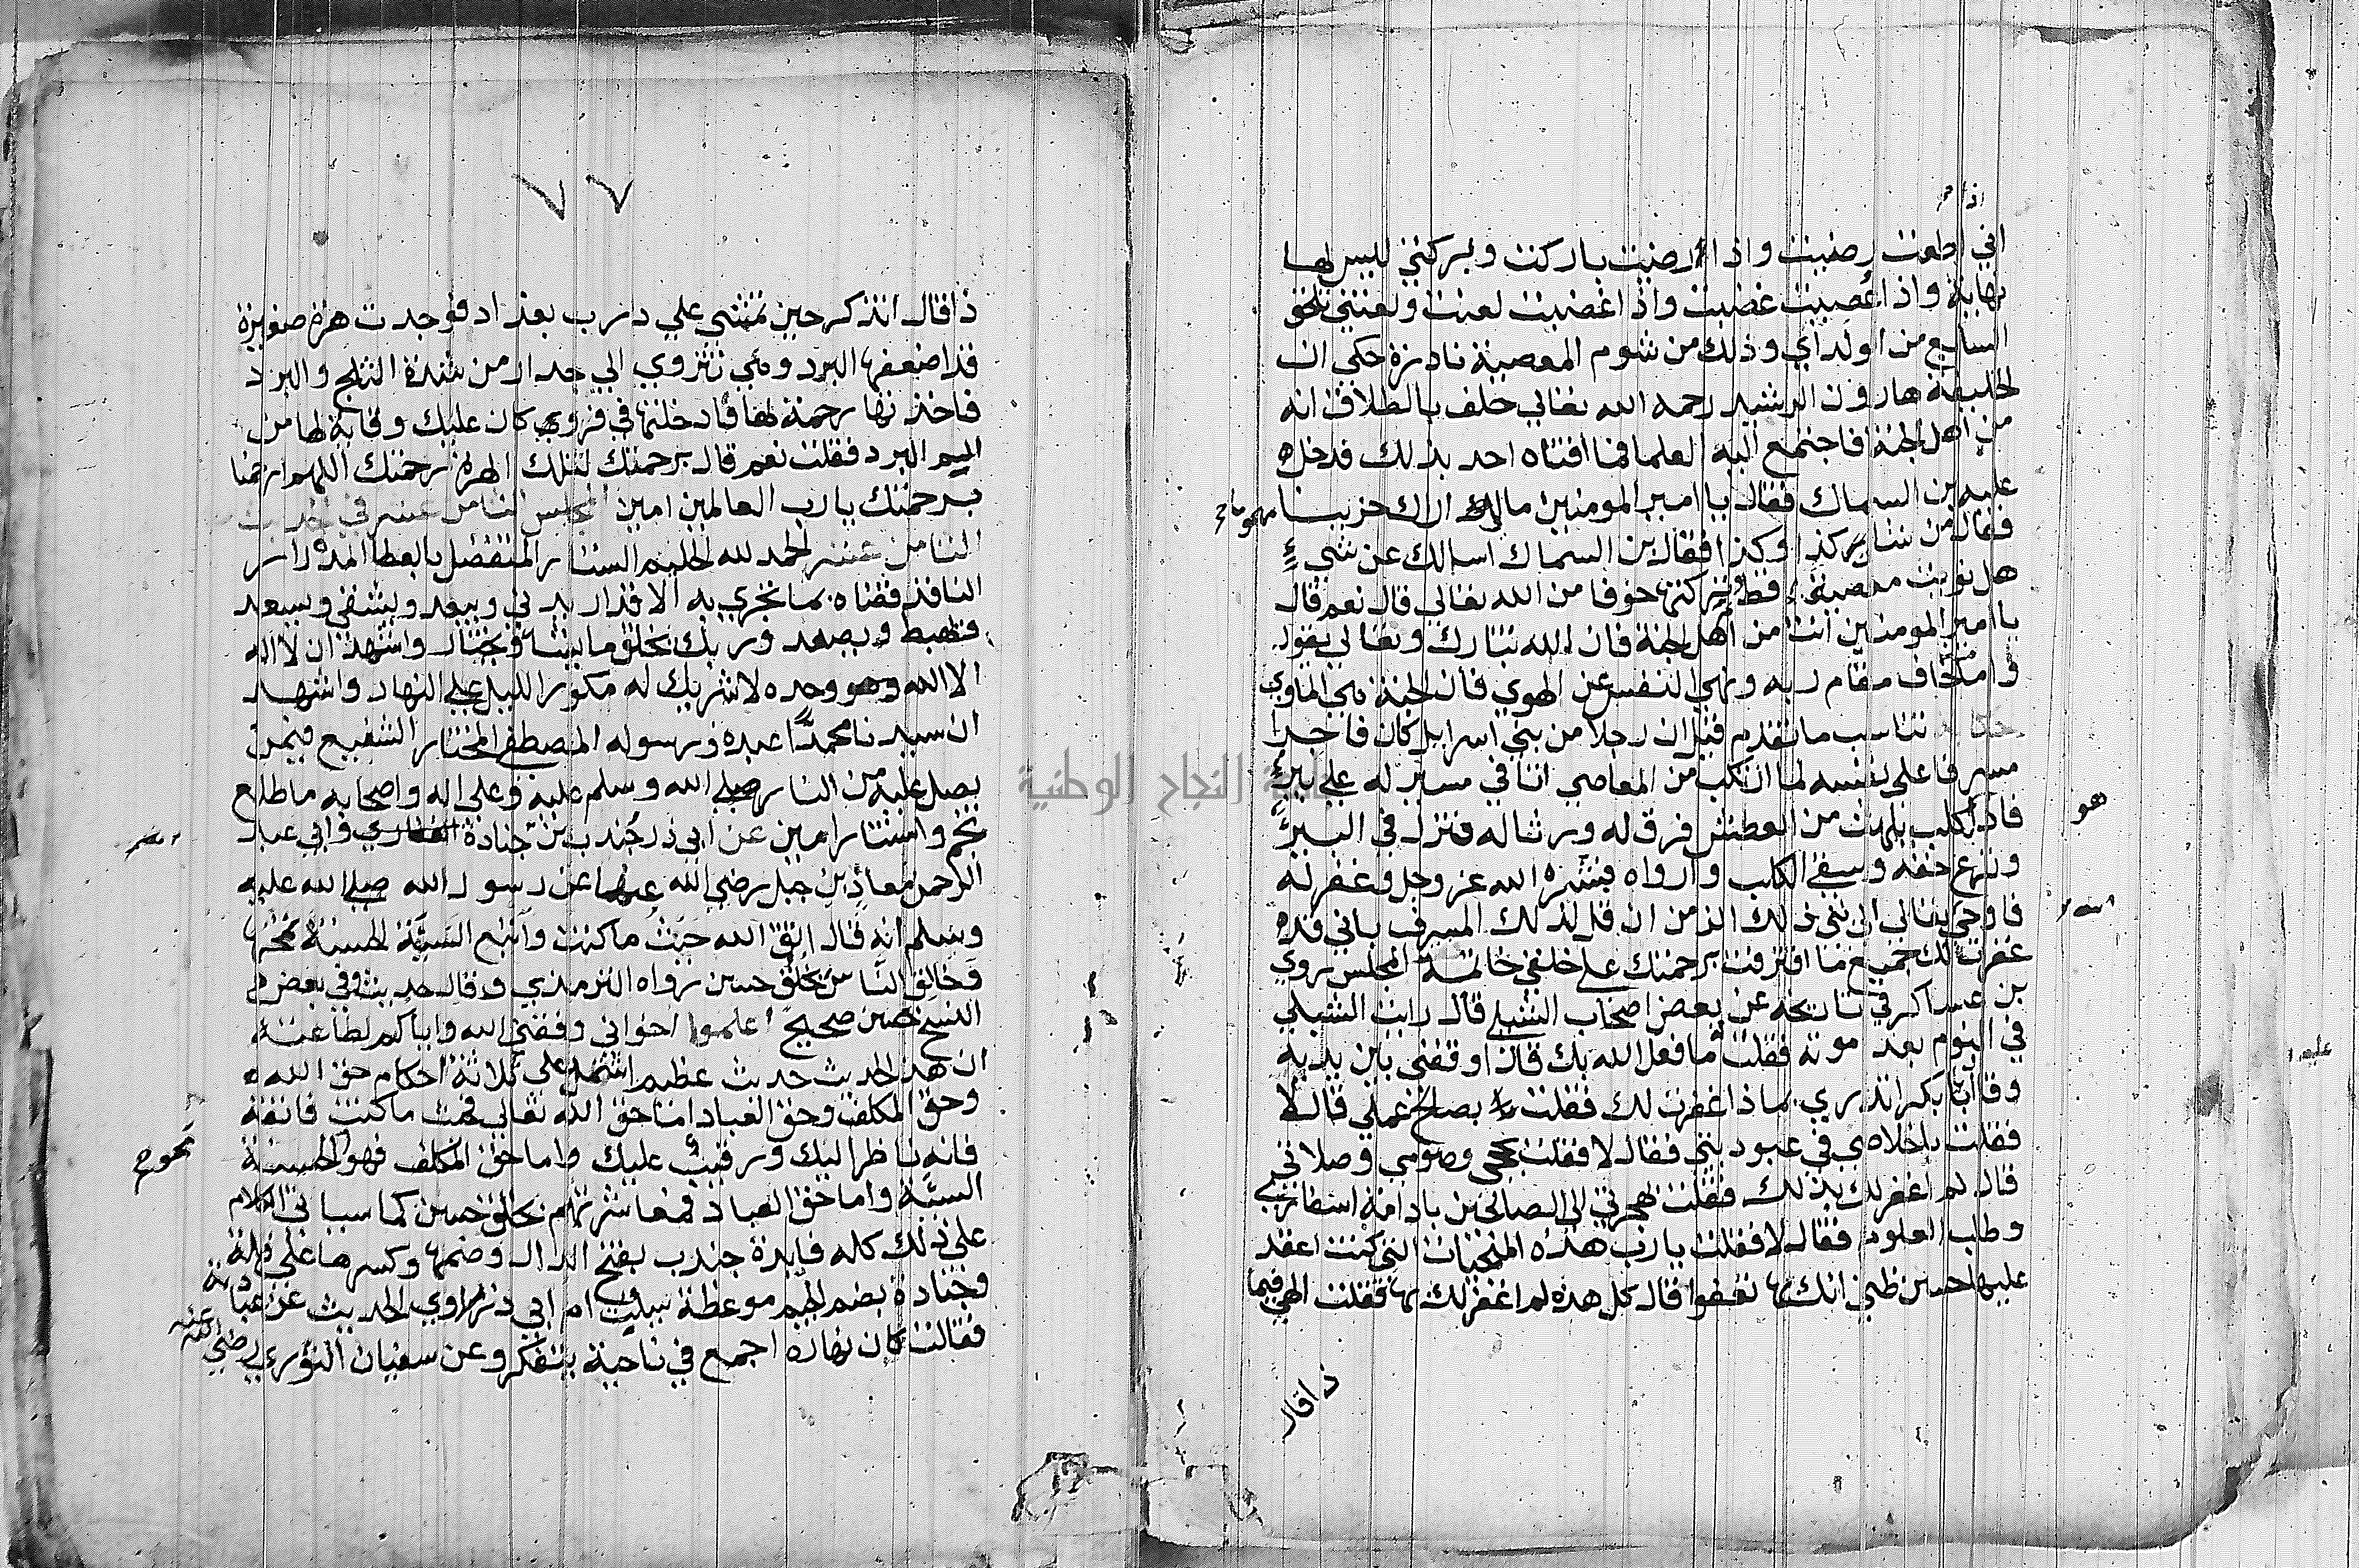 اذا
اني اطعت رضيت واذا ارضيت باركت وبركتي ليس لها
نهاية واذا اعصيت غضبت واذا اغضبت لعنت ولعنتي تلحق
السابع من اولداي وذلك من شوم المعصية نادرة حكي ان
الخليفة هارون الرشيد رحمه الله تعالي حلف بالطلاق انه
من اهل الجنة فاجتمع اليه العلما فما افتاه احد بذلك فدخل
عليه بن السماك فقال يا امير المومنين مالك اراك حزينا مهموما
فقال من شان كذا وكذا فقال بن السماك اسالك عن شيء
هل نويت معصية قط وتركتها خوفا من الله تعالي قال نعم قال
يا امير المومنين انت من اهل الجنة فان الله تبارك وتعالي يقول
وامن خاف مقام ربه ونهي النفس عن الهوي فان الجنة هي الماوي
حكاية تناسب ما تقدم قيل ان رجلا من بني اسرايل كان فاجرا
مسرفا علي نفسه لما ارتكب من المعاصي اتا في مسير له علي بير
هو
فاذا كلب يلهث من العطش فرق له ورثا له فنزل في البير
ونزع خفه وسقي الكلب وارواه فشكره الله عز وجل فغفر له
فاوحي تعالي الي نبي ذلك الزمن ان قل لذلك المسرف باني قد
غفرت لك جميع ما اقترفت برحمتك علي خلقي خاتمة المجلس روي
بن عساكر في تاريخه عن بعض اصحاب الشبلي قال رايت الشبلي
في النوم بعد موته فقلت ما فعل الله بك قال اوقفني بين يديه
وقال يا بكر اتدري بماذا غفرت لك فقلت بصالح عملي قال لا
فقلت باخلاصي في عبوديتي فقال لا فقلت بحجي وصومي وصلاتي
قال لم اغفر لك بذلك فقلت بهجرتي الي الصالحين بادامة اسفاري
وطلب العلوم فقال لا فقلت يا رب هذه المنجيات التي كنت اعقد
عليها حسن ظني انك بها تعفوا قال كل هذه لم اغفر لك بها فقلت الهي فبما
ذا قال
٧٧
ذا قال اتذكر حين تمشي علي درب بغداد فوجدت هرة صغيرة
قد اضعفها البرد وهي تنزوي الي جدار من شدة الثلج والبرد
فاخذتها رحمة لها فادخلتها في فرو كان عليك وقاية لها من
اليم البرد فقلت نعم قال برحمتك لتلك الهرة رحمتك اللهم ارحمنا
برحمتك يا رب العالمين امين المجلس الثامن عشر في الحديث
الثامن عشر الحمد لله الحليم الستار المتفضل بالعطا المدرار
النافذ قضاه بما تجري به الاقدار يدني ويبعد ويشقي ويسعد
ويهبط ويصعد وربك يخلق ما يشا ويختار واشهد ان لا اله
الا الله وحده لا شريك له مكور الليل علي النهار واشهد
ان سيدنا محمدا عبده ورسوله المصطفي المختار الشفيع فيمن
يصل عليه من النار صلي الله وسلم عليه وعلي اله واصحابه ما طلع
نجم واستنار امين عن ابي ذر جندب بن جنادة الغفاري وابي عبد
الرحمن معاذ بن جبل رضي الله عنهما عن رسول الله صلي الله عليه
وسلم انه قال اتق الله حيث ما كنت واتبع السيئة الحسنة تمحها
وخالق الناس بخلق حسن رواه الترمذي وقال حديث وفي بعض
النسخ حسن صحيح اعلموا اخواني وفقني الله واياكم لطاعته
ان هذا الحديث حديث عظيم اشتمل علي ثلاثة احكام حق الله
وحق المكلف وحق العباد اما حق الله تعالي فحيث ما كنت فاتقه
فانه ناظر اليك ورقيب عليك واما حق المكلف فهو الحسنة
تمحو
السيئة واما حق العباد فمعاشرتهم بخلق حسن كما سياتي الكلام
علي ذلك كله فايدة جندب بفتح الدال وضمها وكسرها علي قلة
وجنادة بضم الجيم موعظة سيلت ام ابي ذر راوي الحديث عن عبادته
فقالت كان نهاره اجمع في ناحية يتفكر وعن سفيان الثوري رضي الله عنه
جامعة النجاح الوطنية